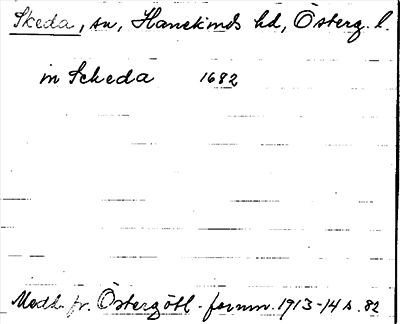 Skeda, sn, Hanekinds hd, Österg. l.
in Scheda 1682
Medd. fr. Östergötl. fornm. 1913-14 s. 82